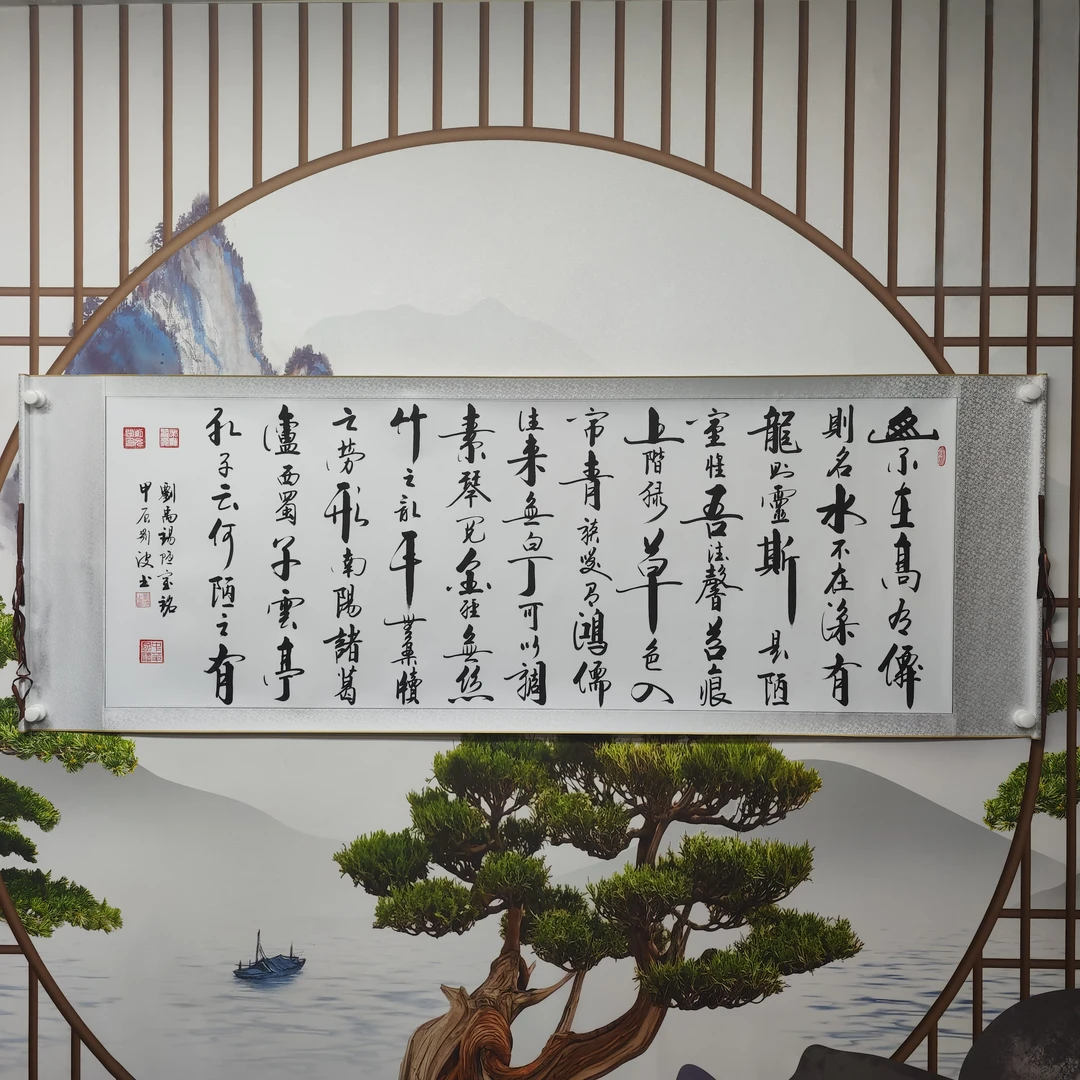 山不在高有僊
則名水不在深有
龍则靈斯是陋
室惟吾德馨苔痕
上階緑草色入
帘青談笑有鴻儒
往来無白丁可以調
素琴閲金經無絲
竹之亂耳無案牘
之勞形南陽諸葛
廬西蜀子雲亭
孔子云何陋之有
劉禹錫陋室銘
甲辰刘波书